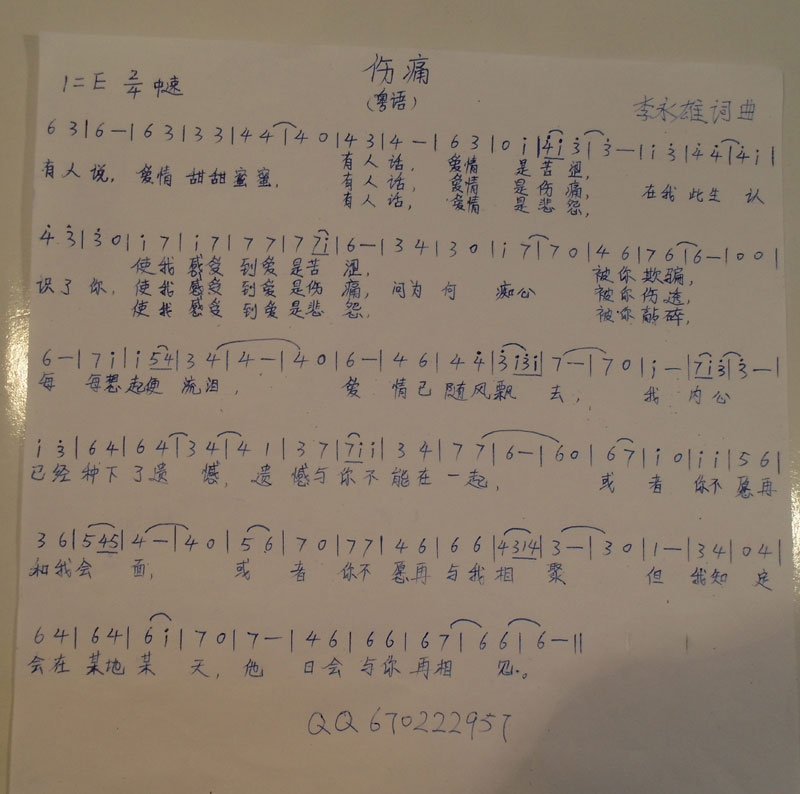 伤痛
1=E 2/4 中速
(粤语)
李永雄词曲
6 3 | 6 — | 6 3 | 3 3 | 4 4 | 4 0 | 4 3 | 4 — | 6 3 | 0 i | 4 i 3 | 3 — | i 3 | 4 4 | 4 i |
有人说, 爱情 甜甜 蜜蜜, 有人话, 爱情 是苦涩, 在我 此生 认
有人话, 爱情 是伤痛,
有人话, 爱情 是悲怨,
4 3 | 3 0 | i 7 | i 7 | 7 7 | 7 7 i | 6 — | 3 4 | 3 0 | i 7 | 7 0 | 4 6 | 7 6 | 6 — | 0 0 |
使我 感受 到爱 是苦 涩, 被你 欺骗,
识了 你, 使我 感受 到爱 是伤 痛, 问为 何 痴心 被你 伤透,
使我 感受 到爱 是悲 怨, 被你 敲碎,
6 — | 7 i | i 5 4 | 3 4 | 4 — | 4 0 | 6 — | 4 6 | 4 4 | 3 i 3 i | 7 — | 7 0 | i — | 7 i 3 | 3 — |
每 每想 起便 流泪, 爱 情已 随风 飘 去, 我 内心
i 3 | 6 4 | 6 4 | 3 4 | 4 1 | 3 7 | 7 i i | 3 4 | 7 7 | 6 — | 6 0 | 6 7 | i 0 | i i | 5 6 |
已经 种下 了遗 憾, 遗 憾与 你不 能在 一起, 或 者 你不 愿再
3 6 | 5 4 5 | 4 — | 4 0 | 5 6 | 7 0 | 7 7 | 4 6 | 6 6 | 4 3 1 4 | 3 — | 3 0 | 1 — | 3 4 | 0 4 |
和我 会 面, 或 者 你不 愿再 与我 相 聚 但 我知 定
6 4 | 6 4 | 6 i | 7 0 | 7 — | 4 6 | 6 6 | 6 7 | 6 6 | 6 — ||
会在 某地 某 天, 他 日会 与你 再相 见。
QQ 670222957